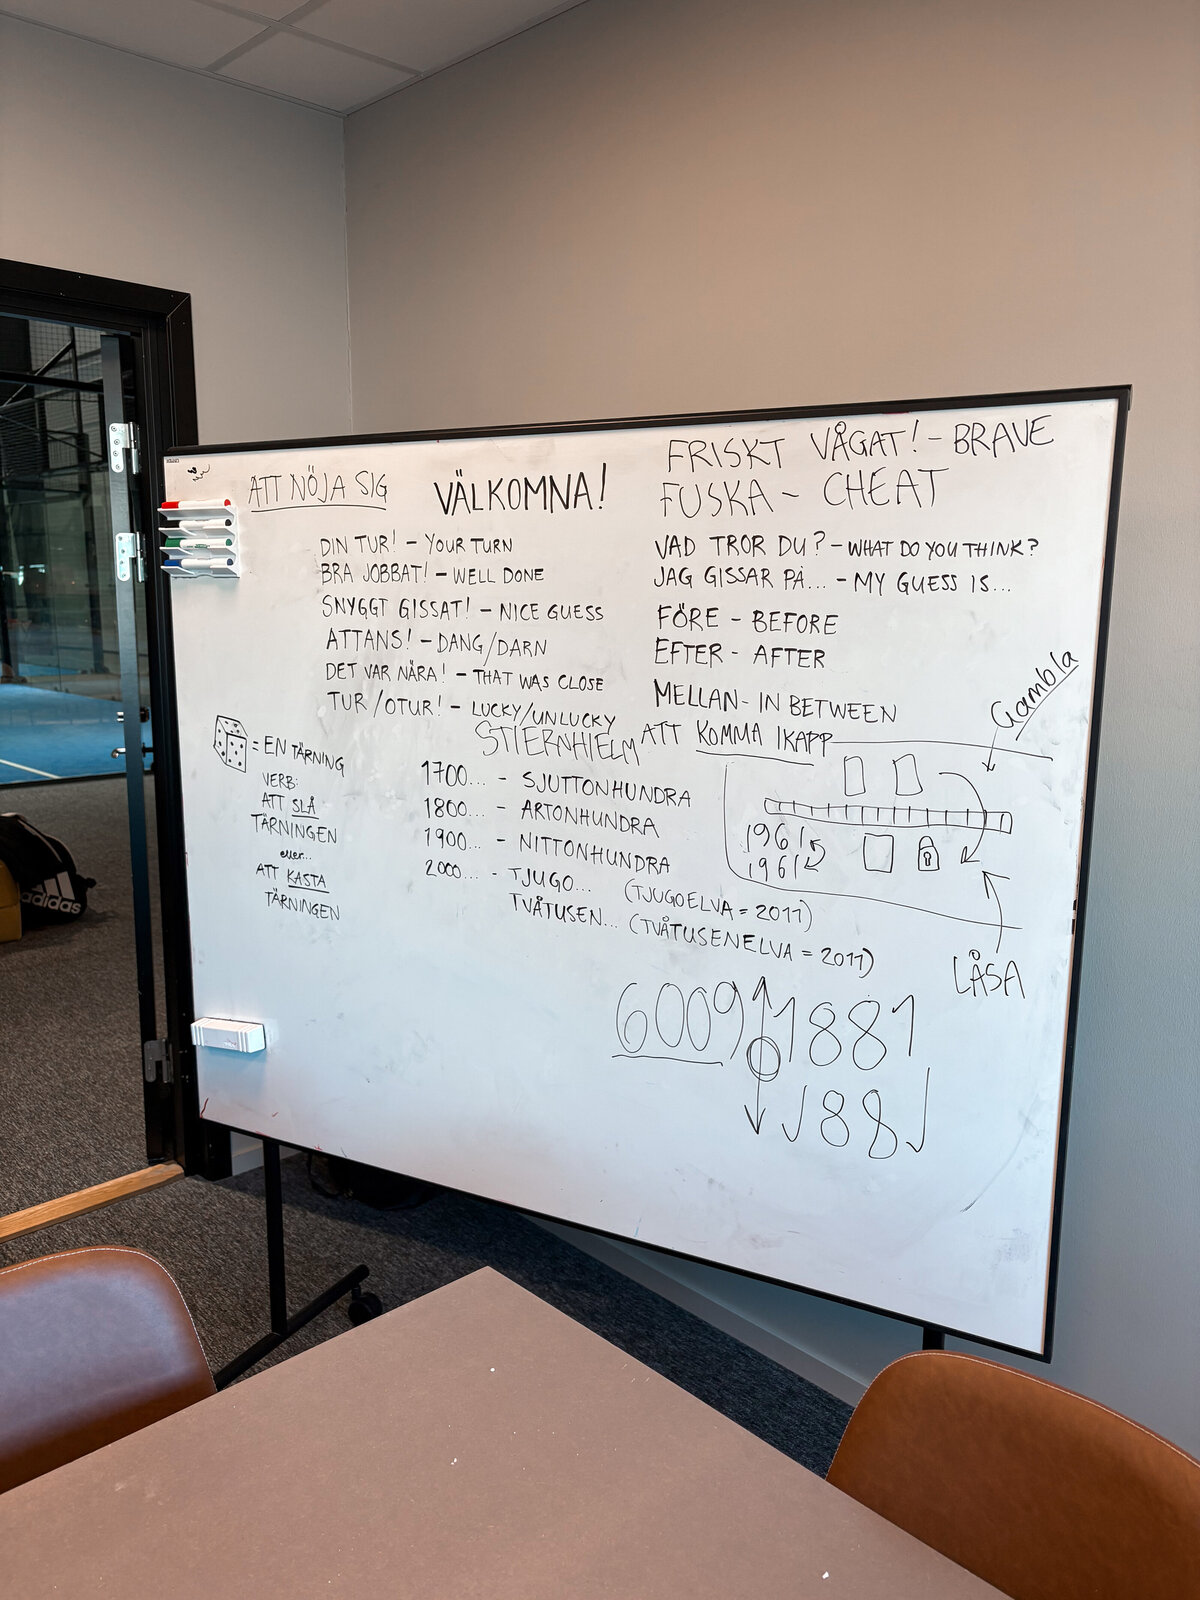 ATT NÖJA SIG
VÄLKOMNA!
FRISKT VÅGAT! - BRAVE
FUSKA - CHEAT
DIN TUR! - YOUR TURN
BRA JOBBAT! - WELL DONE
SNYGGT GISSAT! - NICE GUESS
ATTANS! - DANG/DARN
DET VAR NÄRA! - THAT WAS CLOSE
TUR/OTUR! - LUCKY/UNLUCKY
VAD TROR DU? - WHAT DO YOU THINK?
JAG GISSAR PÅ... - MY GUESS IS...
FÖRE - BEFORE
EFTER - AFTER
MELLAN - IN BETWEEN
ATT KOMMA IKAPP
Gambla
1961
1961
LÅSA
= EN TÄRNING
VERB:
ATT SLÅ
TÄRNINGEN
eller...
ATT KASTA
TÄRNINGEN
STIERNHIELM
1700... - SJUTTONHUNDRA
1800... - ARTONHUNDRA
1900... - NITTONHUNDRA
2000... - TJUGO... (TJUGOELVA = 2011)
TVÅTUSEN... (TVÅTUSENELVA = 2011)
6009 1881
1881
adidas